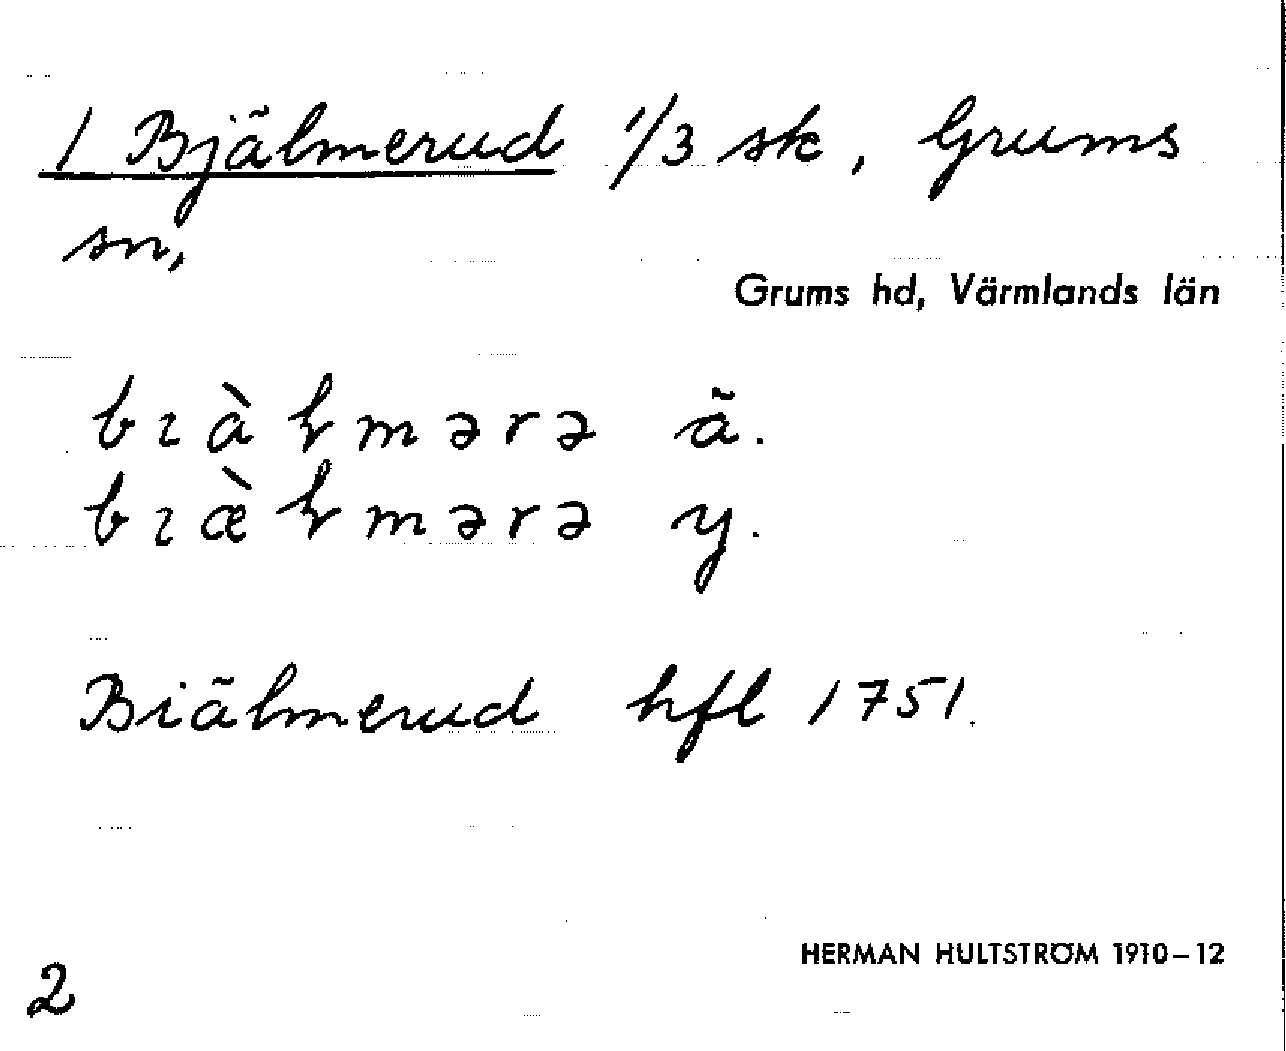 1 Bjälmerud 1/3 sk, Grums
sn,
Grums hd, Värmlands län
bɩàɫmərə ä.
bɩæ̀ɫmərə y.
Biälmerud hfl 1751.
HERMAN HULTSTRÖM 1910–12
2